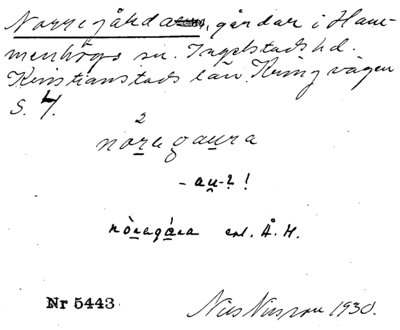 Norregårda, gårdar i Ham-
menhögs sn. Ingelstads hd.
Kristianstads län. Kring vägen
S. 4.
2
noragaura
- au - ? !
nòragára enl. Å. H.
Nr 5443
Nils Nilsson 1930.